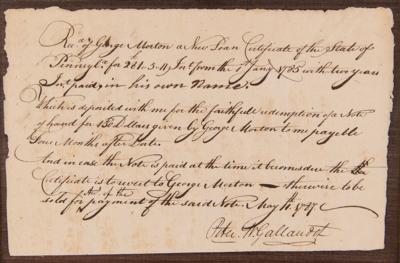 Recd. of George Morton a New Loan Certificate of the State of
Pennyla. for 281.3.11 Int. from the 1st Jany 1785 with two years
Int. paid, in his own Name.
Which is deposited with me for the faithfull redemption of a Note
of hand for 150 Dollars given by George Morton to me payable
Four Months after Date.
And in case the Note is paid at the time it becomes due the
Certificate is to revert to George Morton — otherwise to be
sold for payment of the said Note May 11. 1787
Peter W. Gallaudet